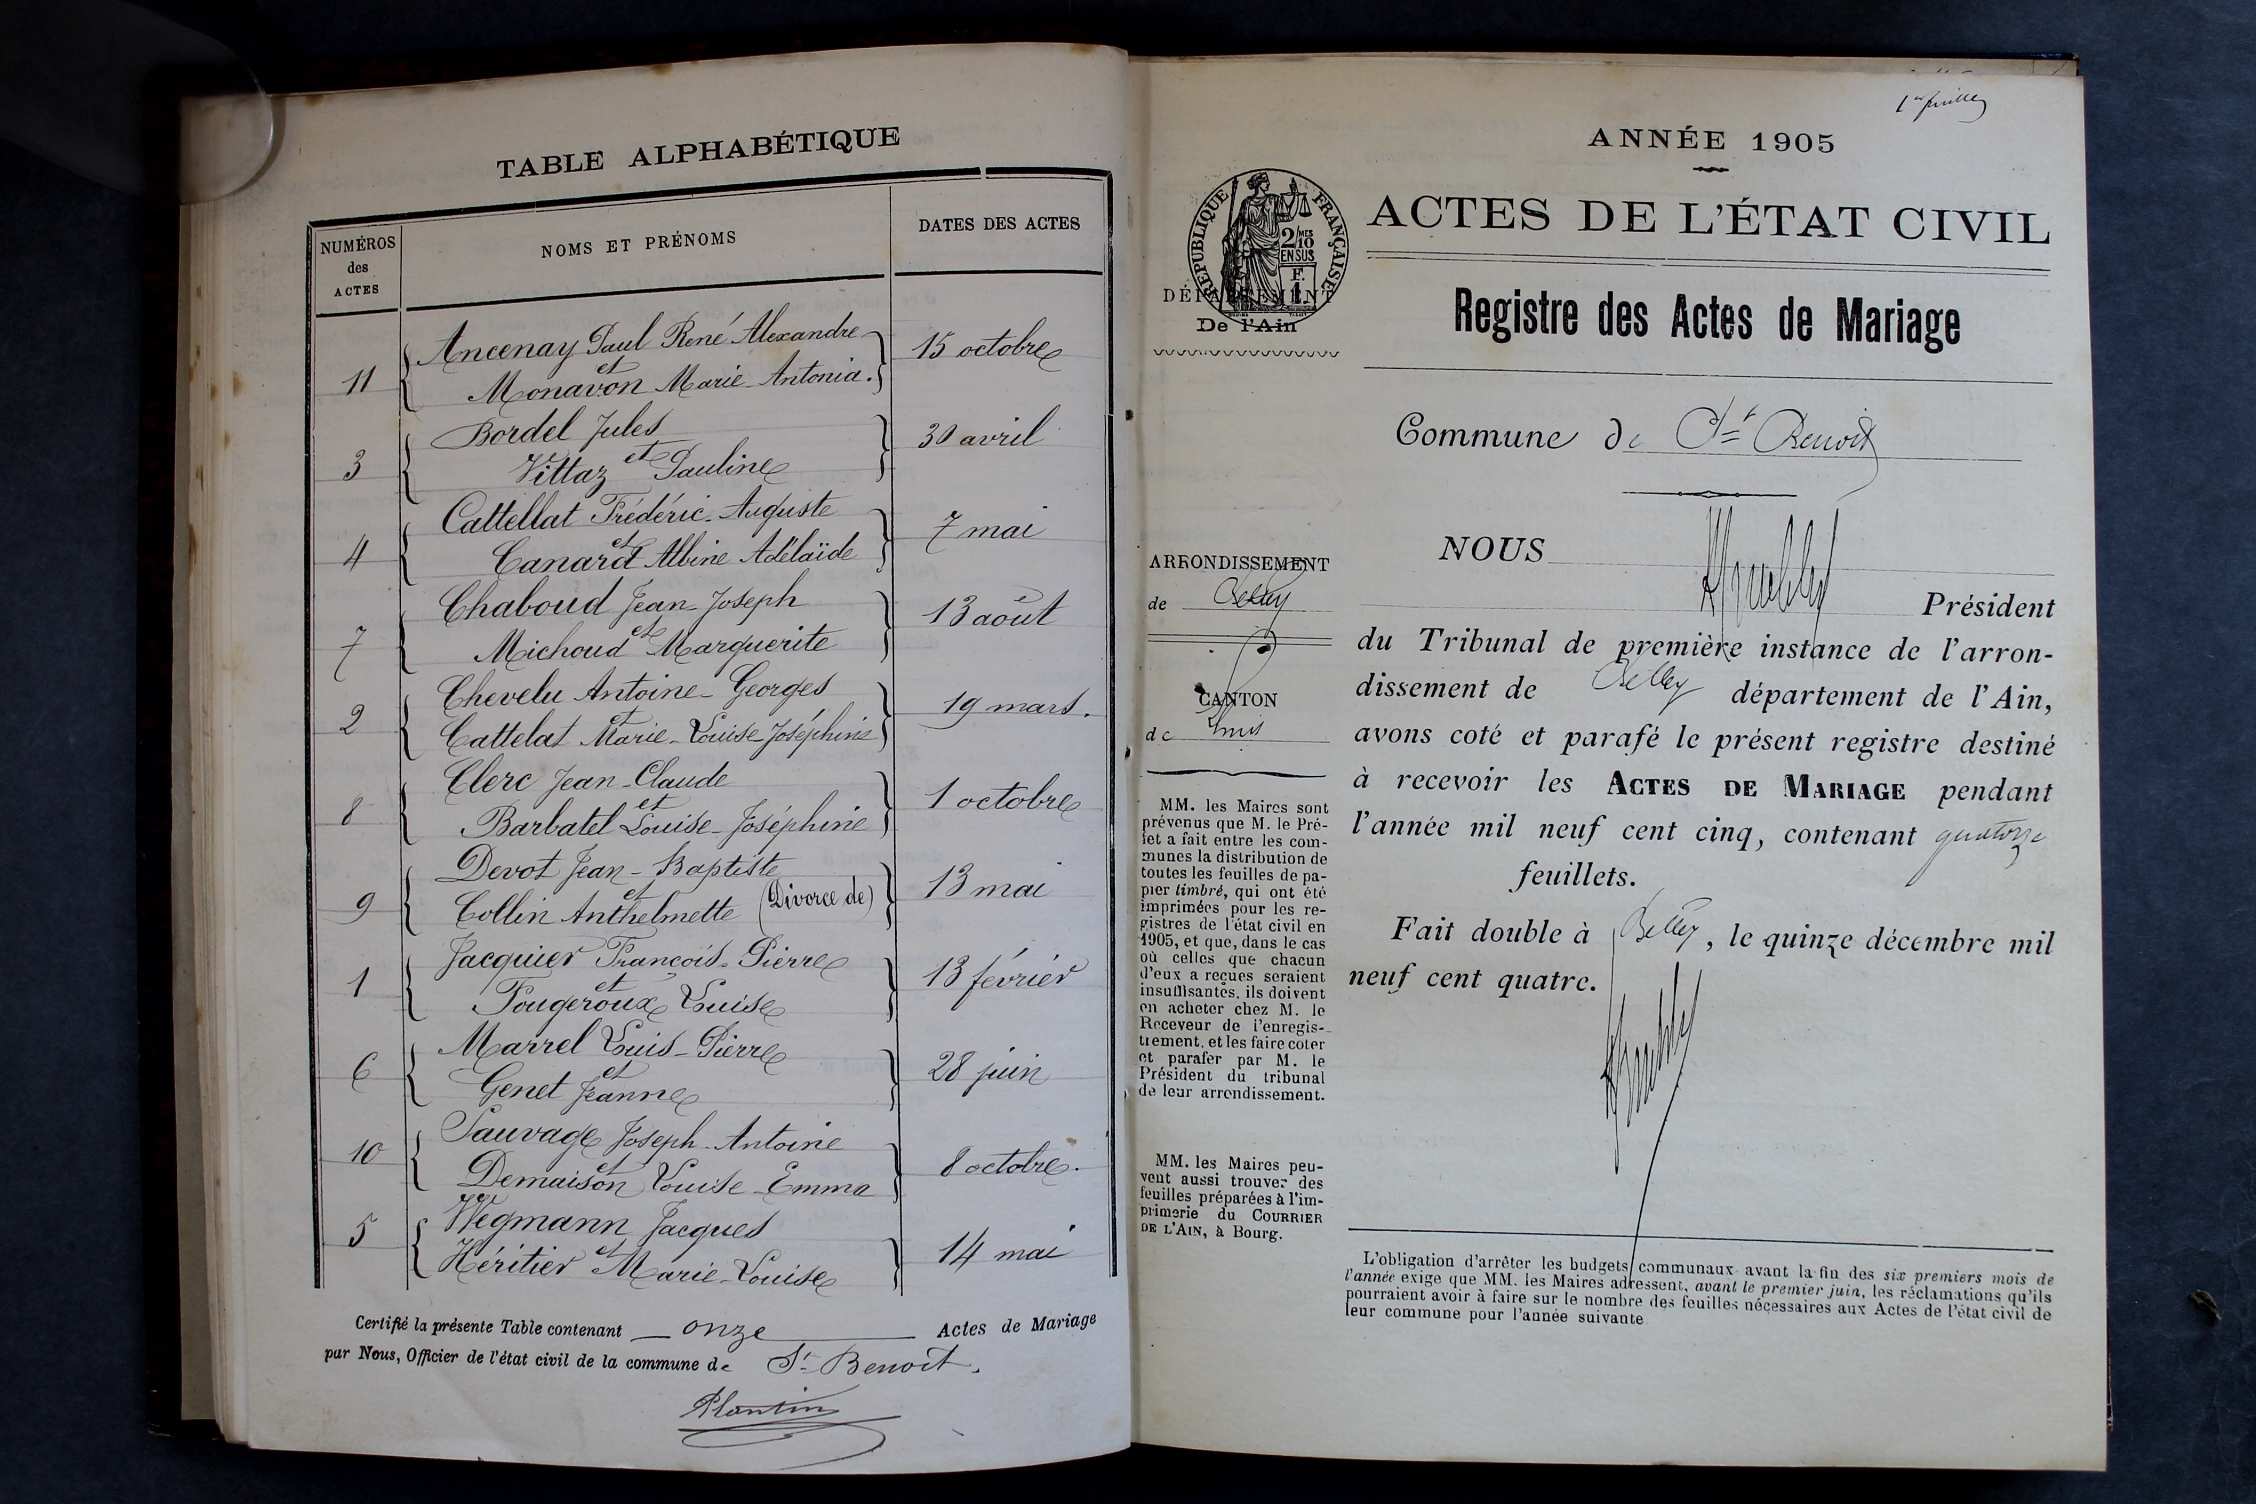 TABLE ALPHABÉTIQUE
NUMÉROS
des
ACTES
NOMS ET PRÉNOMS
DATES DES ACTES
11
Ancenay Paul René Alexandre
et
Monavon Marie Antonia.
15 octobre
3
Bordel Jules
et
Vittaz Pauline
30 avril
4
Cattellat Frédéric-Auguste
et
Canard Albine Adélaïde
7 mai
7
Chaboud Jean-Joseph
et
Michoud Marguerite
13 août
2
Chevelu Antoine-Georges
et
Cattelat Marie-Louise-Joséphine
19 mars.
8
Clerc Jean-Claude
et
Barbatel Louise-Joséphine
1 octobre
9
Devot Jean-Baptiste
et
Collin Anthelmette (Divorce de)
13 mai
1
Jacquier François-Pierre
et
Pougeroux Louise
13 février
6
Marrel Louis-Pierre
et
Genet Jeanne
28 juin
10
Sauvage Joseph-Antoine
et
Demaison Louise-Emma
8 octobre.
5
Wegmann Jacques
et
Héritier Marie-Louise
14 mai
Certifié la présente Table contenant onze Actes de Mariage
par Nous, Officier de l'état civil de la commune de St Benoît.
Plantin
1er feuillet
ANNÉE 1905
ACTES DE L'ÉTAT CIVIL
RÉPUBLIQUE FRANÇAISE
2/10 MES
EN SUS
F.
1
DÉPARTEMENT
De l'Ain
Registre des Actes de Mariage
Commune de St Benoit
ARRONDISSEMENT
de Belley
CANTON
de Lhuis
MM. les Maires sont
prévenus que M. le Pré-
fet a fait entre les com-
munes la distribution de
toutes les feuilles de pa-
pier timbré, qui ont été
imprimées pour les re-
gistres de l'état civil en
1905, et que, dans le cas
où celles que chacun
d'eux a reçues seraient
insuffisantes, ils doivent
en acheter chez M. le
Receveur de l'enregis-
trement, et les faire coter
et parafer par M. le
Président du tribunal
de leur arrondissement.
MM. les Maires peu-
vent aussi trouver des
feuilles préparées à l'im-
primerie du COURRIER
DE L'AIN, à Bourg.
NOUS
Président
du Tribunal de première instance de l'arron-
dissement de Belley département de l'Ain,
avons coté et parafé le présent registre destiné
à recevoir les ACTES DE MARIAGE pendant
l'année mil neuf cent cinq, contenant quatorze
feuillets.
Fait double à Belley, le quinze décembre mil
neuf cent quatre.
L'obligation d'arrêter les budgets communaux avant la fin des six premiers mois de
l'année exige que MM. les Maires adressent, avant le premier juin, les réclamations qu'ils
pourraient avoir à faire sur le nombre des feuilles nécessaires aux Actes de l'état civil de
leur commune pour l'année suivante